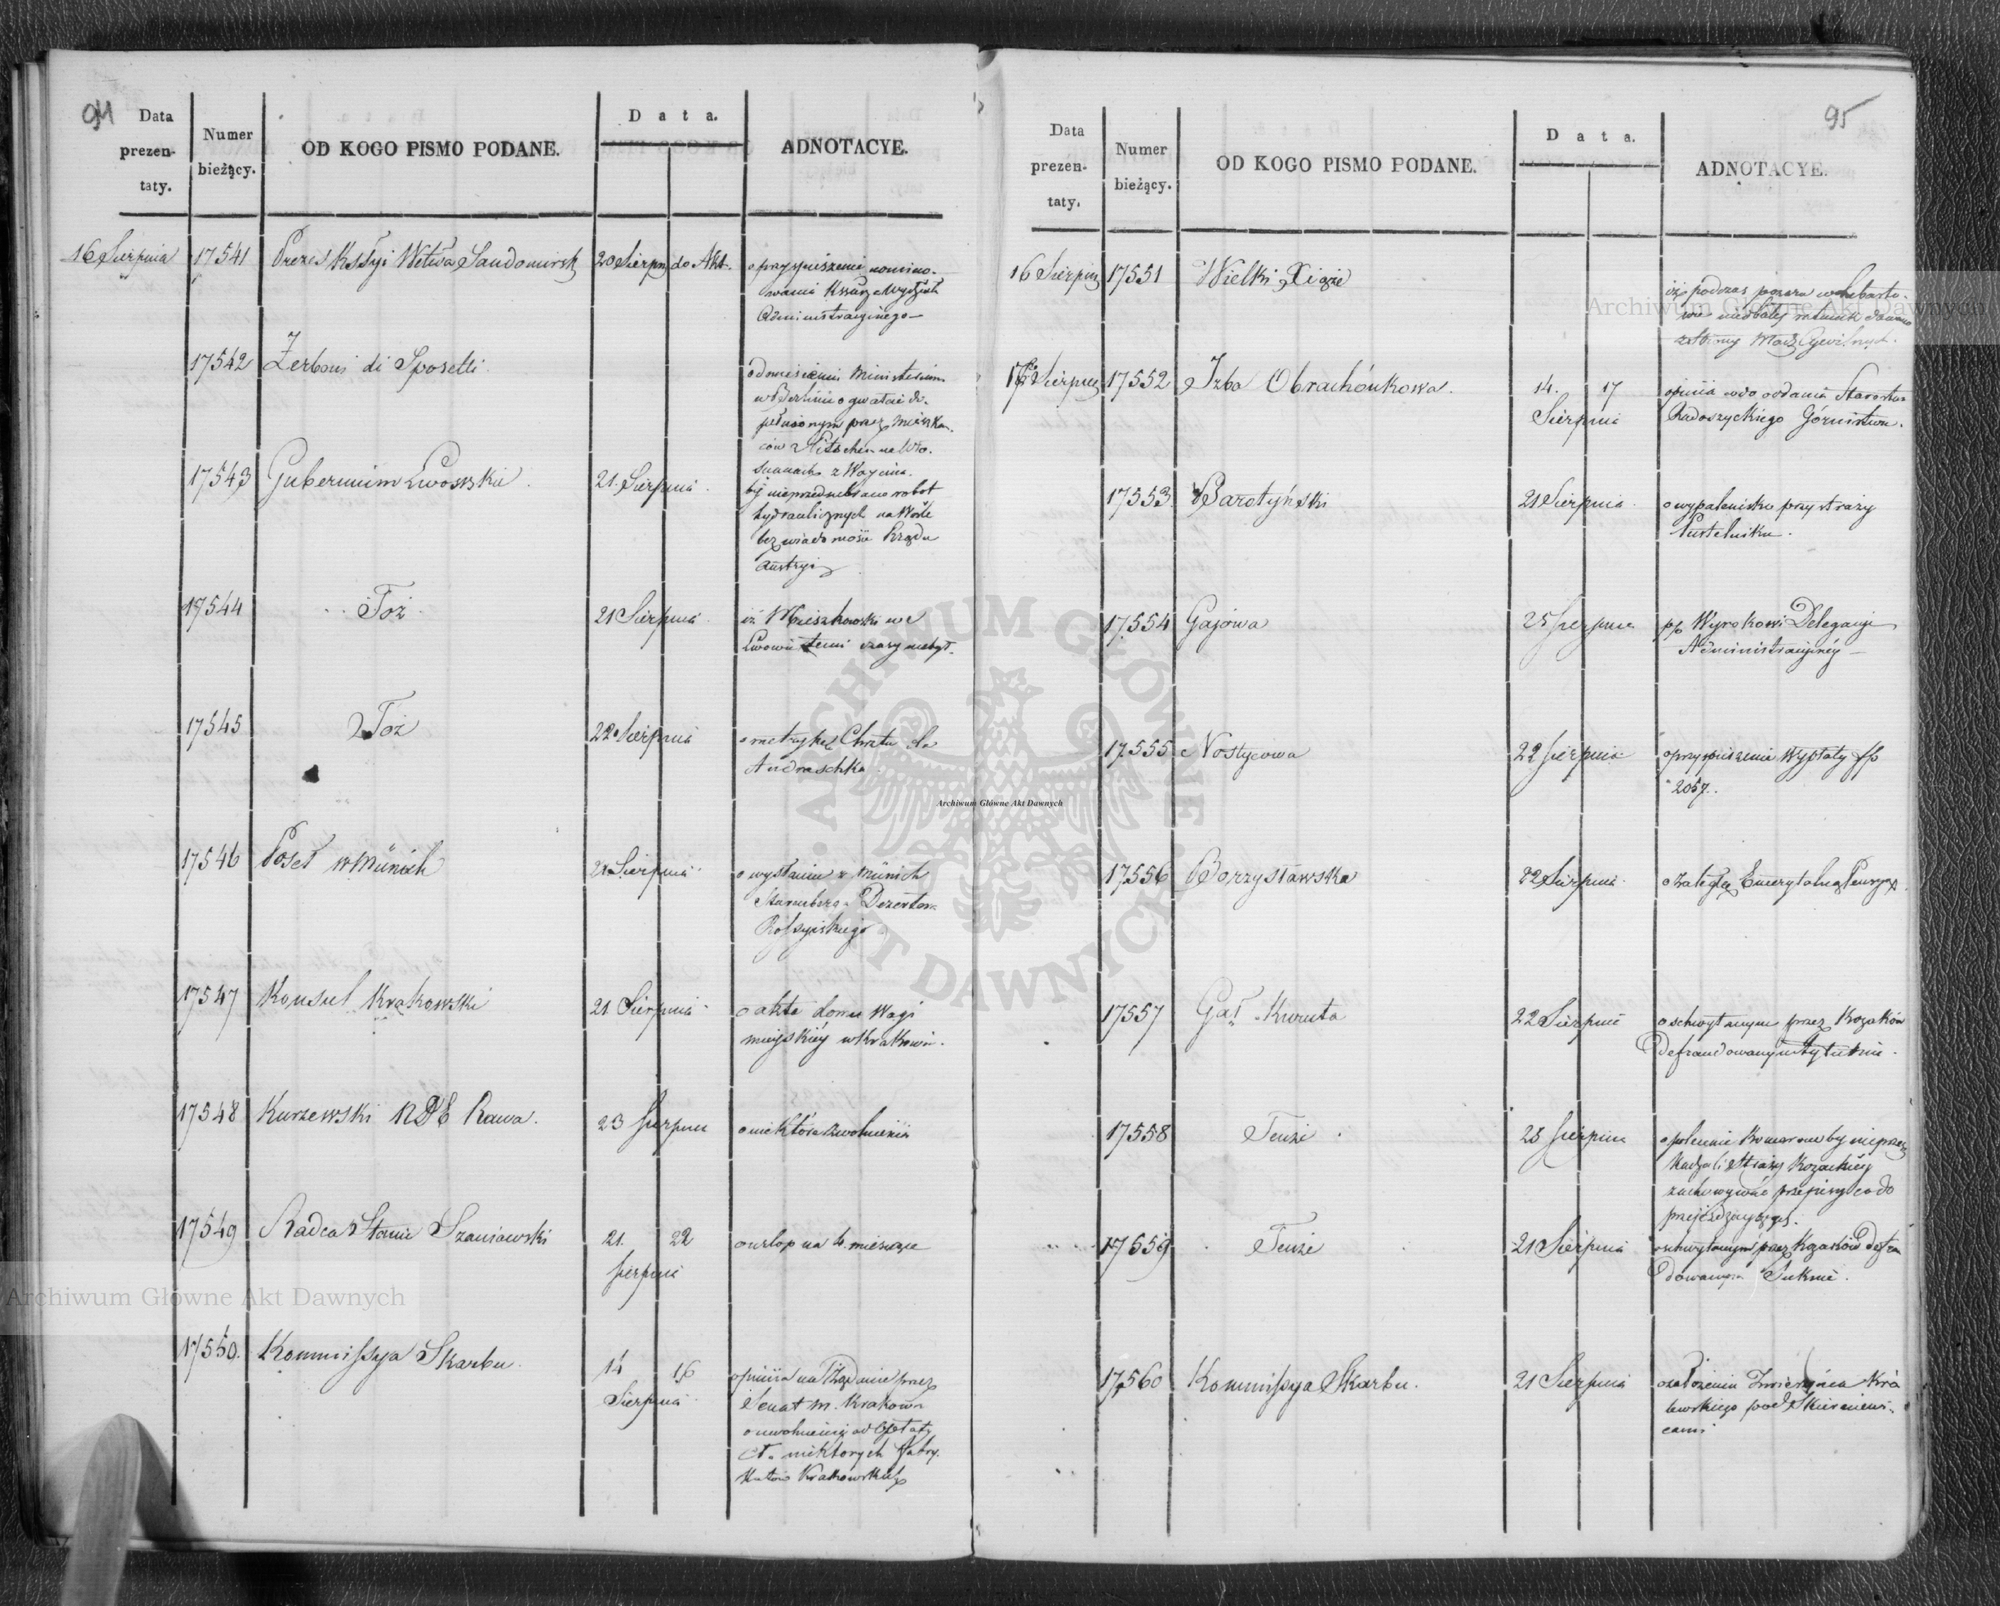 94
Data prezen- taty.
Numer bieżący.
OD KOGO PISMO PODANE.
Data.
ADNOTACYE.
16 Sierpnia 17541 Prezes Kssyi Wdtwa Sandomirsk 20 Sierpn do Akt.
o przyspieszenie nomino-
wania
Administracyinego
17542 Zerboni di Sposetti
o doniesieniu Ministerium
w Berlinie o gwałcie do-
pełnionym przez mieszkań-
ców
z
17543 Gubernium Lwowskie 21 Sierpnia
by nieprzedsiebrano robot
hydraulicznych na Wiśle
bez wiadomości Rządu
Austryi
17544 Toż 21 Sierpnia
iż Mieszkowski we
Lwowie temi czasy niebył.
17545 Toż 22 Sierpnia
o metrykę Chrztu dla
Andraschka
17546 Poseł w Münich 21 Sierpnia
o wysłaniu z Münich
Starnberga Dezertera
Rossyiskiego
17547 Konsul Krakowski 21 Sierpnia
o akta domu Wagi
miejskiéy w Krakowie.
17548 Kurzewski Rawa. 23 Sierpnia
17549 Radca Stanu Szaniawski 21. 22
Sierpnia
o urlop na 4 miesiące
17550. Kommissya Skarbu 14 16
Sierpnia
opiniia na Żądanie przez
Senat m. Krakowa
o uwolnienie od Opłaty
cł. niektorych Fabry-
katów Krakowskich
95
Data prezen- taty.
Numer bieżący.
OD KOGO PISMO PODANE.
Data.
ADNOTACYE.
16 Sierpnia 17551 Wielki Xiąże
iż podczas pożaru w Lubarto-
wie niedbały ratunek dawano
ze strony Władz Cywilnych.
17 Sierpnia 17552 Izba Obrachónkowa. 14. 17
Sierpnia
opinia co do oddania Starostwa
Radoszyckiego Górnictwu.
17553 Barotyński 21 Sierpnia
o wypaleniska przy straży
Pustelniku.
17554 Gajowa 25 Sierpnia
pp Wyrokowi Delegacyi
Administracyinéy
17555 Nostycowa 22 Sierpnia
o przyspieszenie Wypłaty fp
2057.
17556 Borzysławska 22 Sierpnia
o zaległą Emerytalną Pensyą
17557 Gał Kuruta 22 Sierpnia
o schwytanym przez Kozaków
Defraudowanym Tytuniu.
17558 Tenże 23 Sierpnia
o polecenie Komorom by nieprzesz-
kadzali Straży Kozackiéy
zachowywać przepisy co do
przejeżdzaiących.
17559 Tenże 21 Sierpnia
o schwytanym przez Kozaków Defra-
dowanym Suknie.
17560 Kommissya Skarbu. 21 Sierpnia
o założeniu Zwierzyńca Kró-
lewskiego pod Skierniewi-
cami
Archiwum Główne Akt Dawnych
Archiwum Główne Akt Dawnych
Archiwum Główne Akt Dawnych
ARCHIWUM GŁÓWNE AKT DAWNYCH